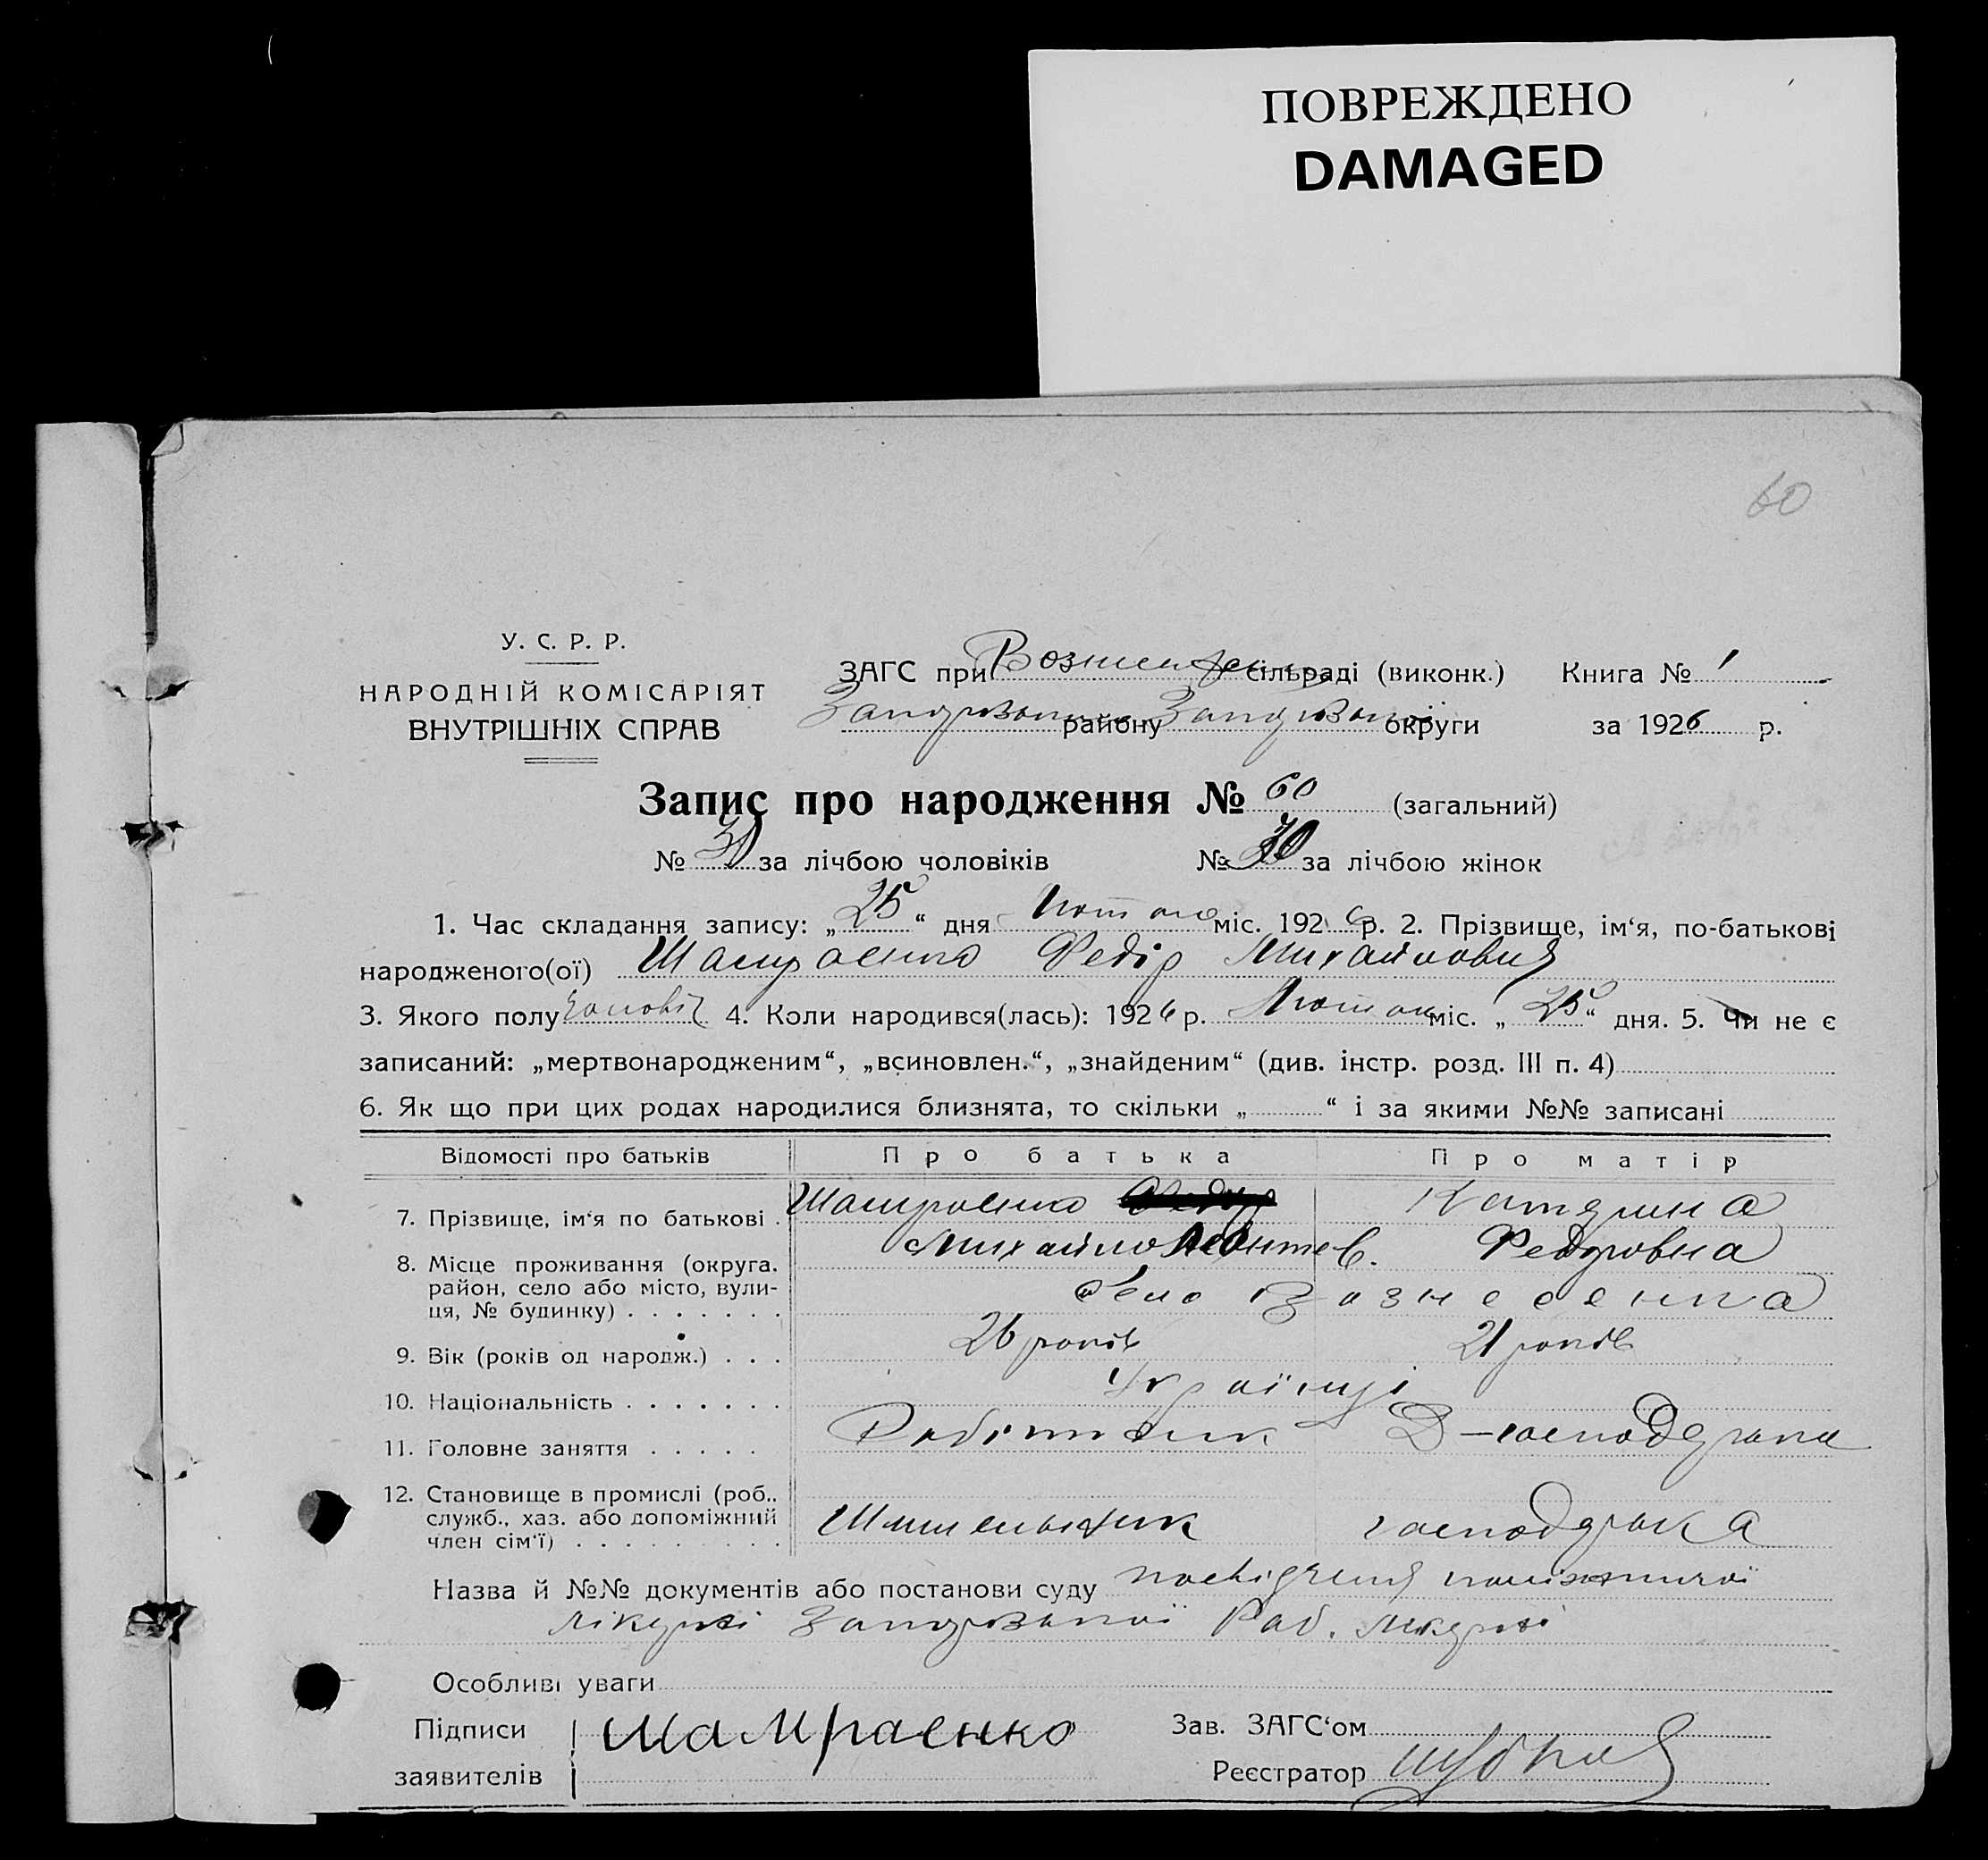 ПОВРЕЖДЕНО
DAMAGED
60
У. С. Р. Р.
НАРОДНІЙ КОМІСАРІЯТ
ВНУТРІШНІХ СПРАВ
ЗАГС при сільраді (виконк.) Книга № 1
району округи за 1926 р.
Запис про народження № 60 (загальний)
№ за лічбою чоловіків № за лічбою жінок
1. Час складання запису: „25“ дня Лютого міс. 1926 р. 2. Прізвище, ім‘я, по-батькові
народженого(ої) Шамраенко Федір Михайлович
3. Якого полу 4. Коли народився(лась): 1926 р. Лютого міс. „25“ дня. 5. Чи не є
записаний: „мертвонародженим“, „всиновлен.“, „знайденим“ (див. інстр. розд. III п. 4)
6. Як що при цих родах народилися близнята, то скільки „ “ і за якими №№ записані
Відомості про батьків Про батька Про матір
7. Прізвище, ім‘я по батькові . Шамраенко Катерина
Михайло Федоровна
8. Місце проживання (округа, район, село або місто, вулиця, № будинку) . . . . . . . село Вознесенка
9. Вік (років од народж.) . . . 26 років 21 років
10. Національність . . . . . . . Українці
11. Головне заняття . . . . . Робітник Д-господарка
12. Становище в промислі (роб., служб., хаз. або допоміжний член сім‘ї) . . . . . . . . . господарка
Назва й №№ документів або постанови суду посвідчення
лікарні Запорізької Раб. лікарні
Особливі уваги
Підписи шамраенко Зав. ЗАГС‘ом
заявителів Реєстратор